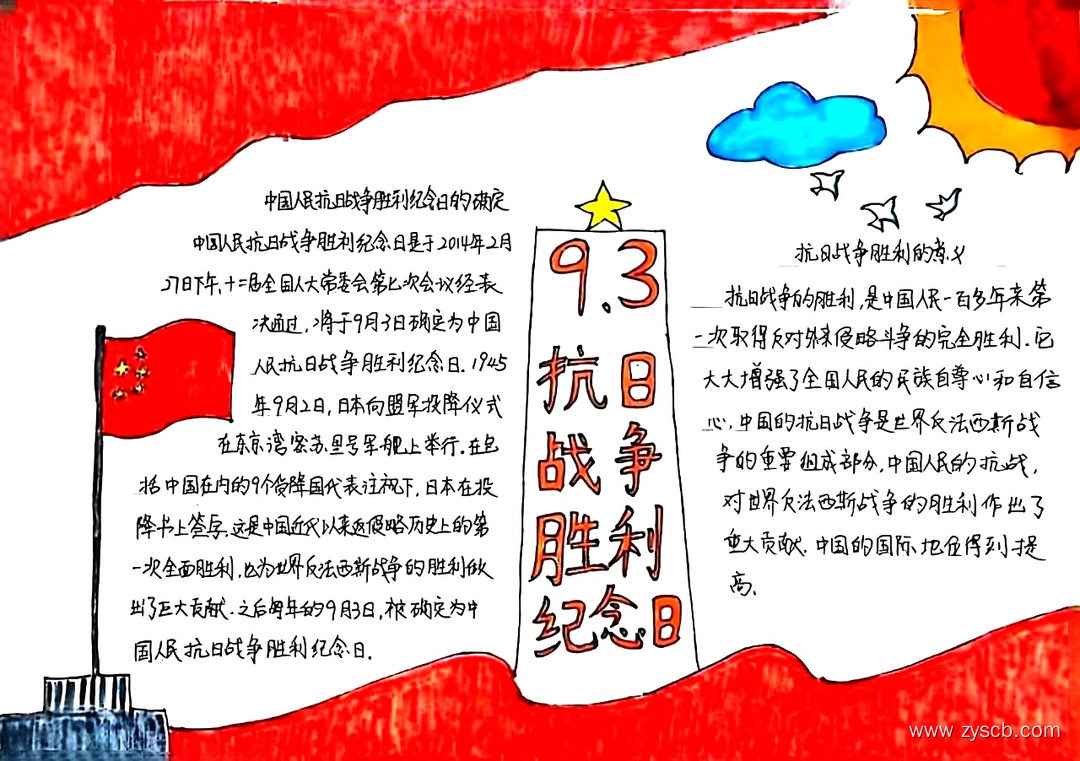 中国人民抗日战争胜利纪念日的确定
中国人民抗日战争胜利纪念日是于2014年2月
27日下午,十二届全国人大常委会第七次会议经表
决通过,将于9月3日确定为中国
人民抗日战争胜利纪念日.1945
年9月2日,日本向盟军投降仪式
在东京湾密苏里号军舰上举行.在包
括中国在内的9个受降国代表注视下,日本在投
降书上签字.这是中国近代以来反侵略历史上的第
一次全面胜利,也为世界反法西斯战争的胜利做
出了巨大贡献.之后每年的9月3日,被确定为中
国人民抗日战争胜利纪念日.
9.3
抗日
战争
胜利
纪念日
抗日战争胜利的意义
抗日战争的胜利,是中国人民一百多年来第
一次取得反对外来侵略斗争的完全胜利.它
大大增强了全国人民的民族自尊心和自信
心,中国的抗日战争是世界反法西斯战
争的重要组成部分,中国人民的抗战,
对世界反法西斯战争的胜利作出了
重大贡献.中国的国际地位得到提
高.
www.zyscb.com